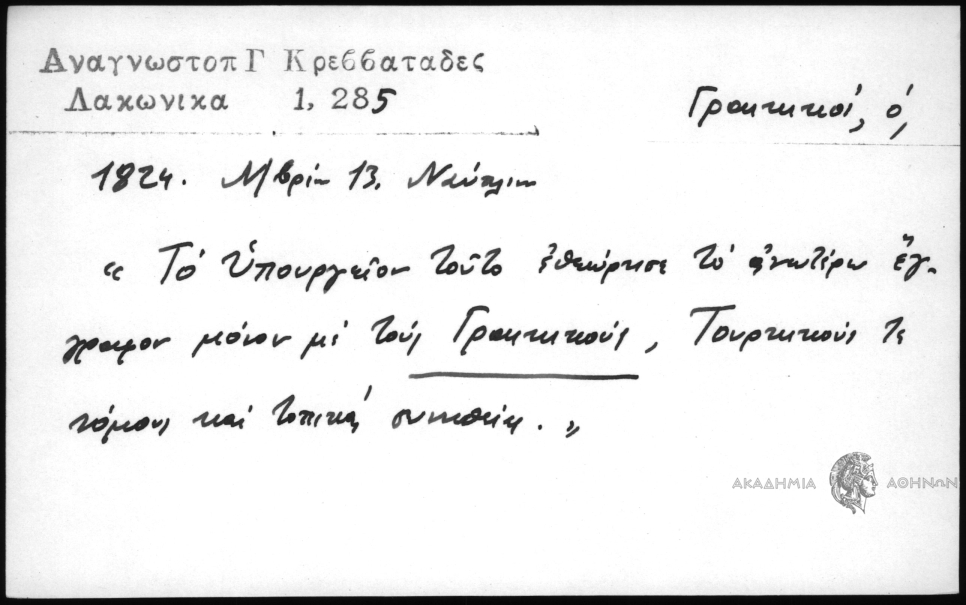 Αναγνωστοπ Γ Κρεββαταδες
Λακωνικα 1, 285
Γραικικοί, ὁ,
1824. Ν/βρίου 13. Ναύπλιον
« Τό Ὑπουργεῖον τοῦτο ἐθεώρησε τό ἀνωτέρω ἔγ-
γραφον μόνον μέ τούς Γραικικούς, Τουρκικούς τε
νόμους καί τοπικάς συνηθείας. »
ΑΚΑΔΗΜΙΑ ΑΘΗΝΩΝ